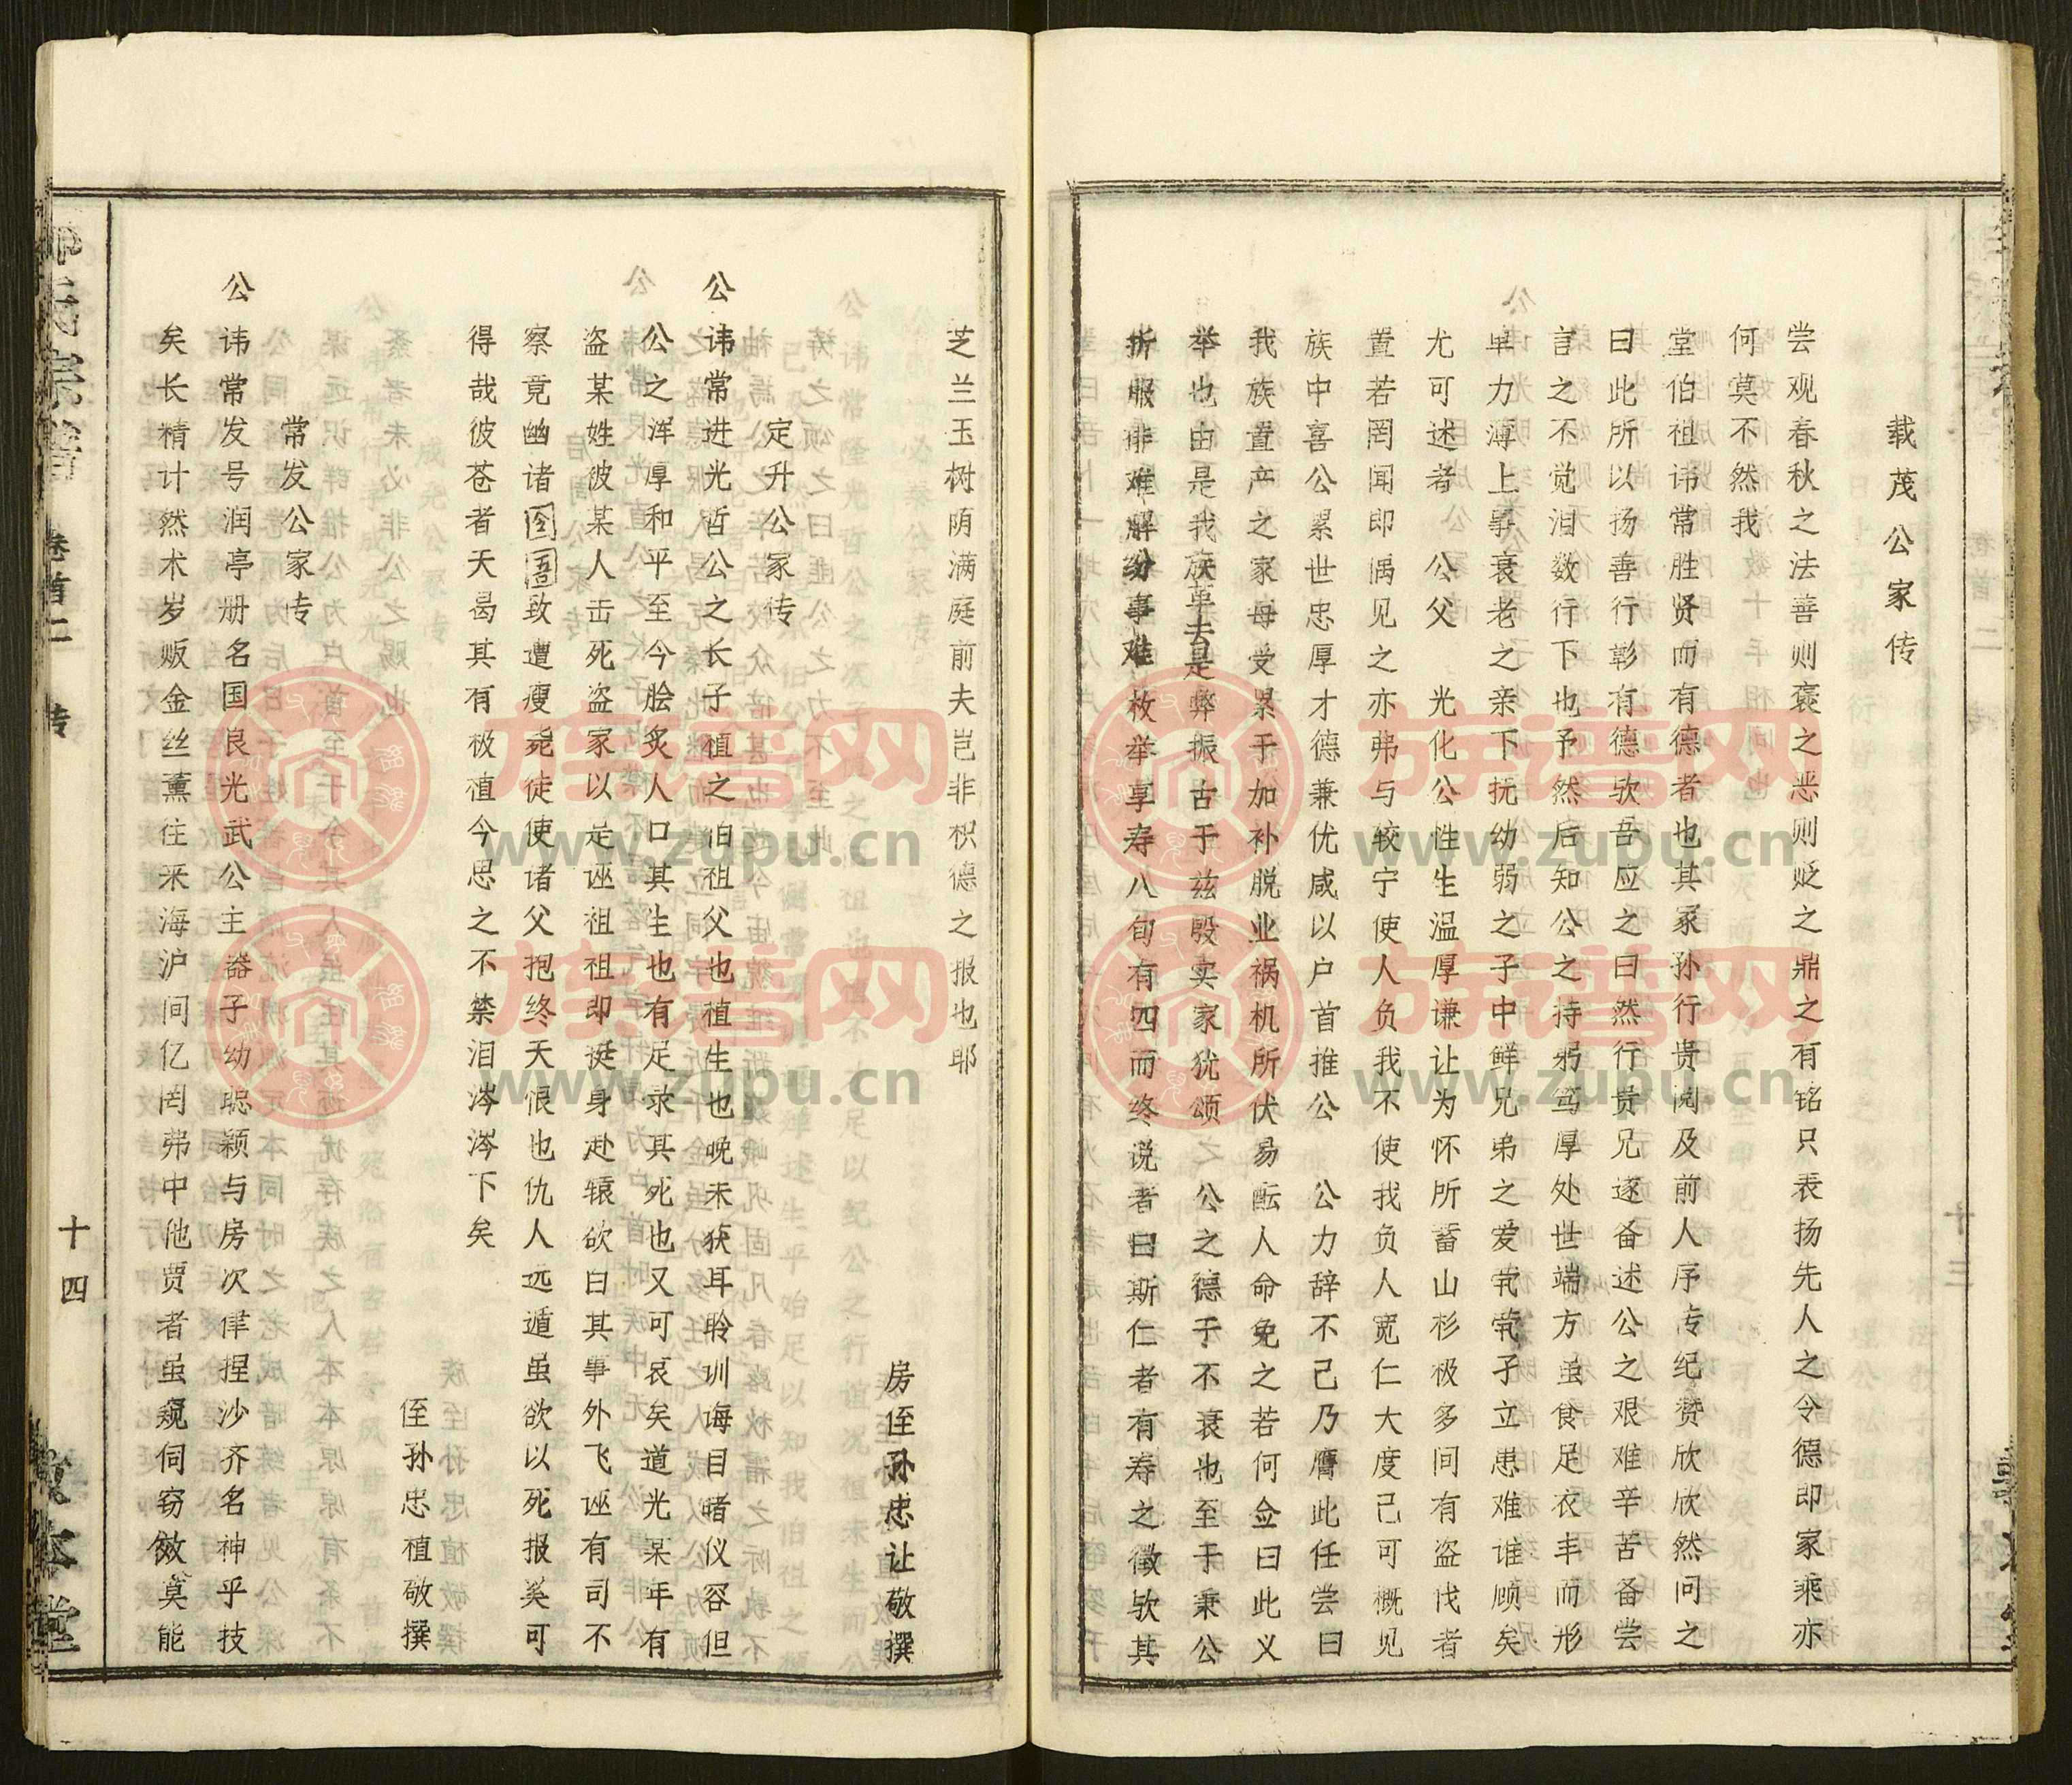 载茂公家传
尝观春秋之法善则褒之恶则贬之鼎之有铭只表扬先人之令德即家乘亦
何莫不然我
堂伯祖讳常胜贤而有德者也其冢孙行贵阅及前人序传纪赞欣欣然问之
曰此所以扬善行彰有德欤吾应之曰然行贵兄遂备述公之艰难辛苦备尝
言之不觉泪数行下也予然后知公之持躬笃厚处世端方虽食足衣丰而形
单力薄上事衰老之亲下抚幼弱之子中鲜兄弟之爱茕茕孑立患难谁顾矣
尤可述者 公父 光化公性生温厚谦让为怀所蓄山杉极多间有盗伐者
置若罔闻即偶见之亦弗与较宁使人负我不使我负人宽仁大度己可概见
族中喜公累世忠厚才德兼优咸以户首推公 公力辞不己乃膺此任尝曰
我族置产之家每受累于加补脱业祸机所伏易酝人命免之若何佥曰此义
举也由是我族革去是弊振古于兹殷实家犹颂 公之德于不衰也至于秉公
折服排难解纷事难枚举享寿八旬有四而终说者曰斯仁者有寿之徵欤其
芝兰玉树荫满庭前夫岂非积德之报也耶
房侄孙忠让敬撰
定升公家传
公讳常进光哲公之长子植之伯祖父也植生也晚未获耳聆训诲目睹仪容但
公之浑厚和平至今脍炙人口其生也有足录其死也又可哀矣道光某年有
盗某姓彼某人击死盗家以是诬祖祖即挺身赴辕欲白其事外飞诬有司不
察竟幽诸囹圄致遭瘦毙徒使诸父抱终天恨也仇人远遁虽欲以死报奚可
得哉彼苍者天曷其有极植今思之不禁泪涔涔下矣
侄孙忠植敬撰
常发公家传
公讳常发号润亭册名国良光武公主器子幼聪颖与房次侓捏沙齐名神乎技
矣长精计然术岁贩金丝薰往来海沪间亿罔弗中他贾者虽窥伺窃效莫能
氏宗谱 卷首二 传 十四 敦本堂
族谱网
www.zupu.cn
族谱网
www.zupu.cn
族谱网
www.zupu.cn
族谱网
www.zupu.cn